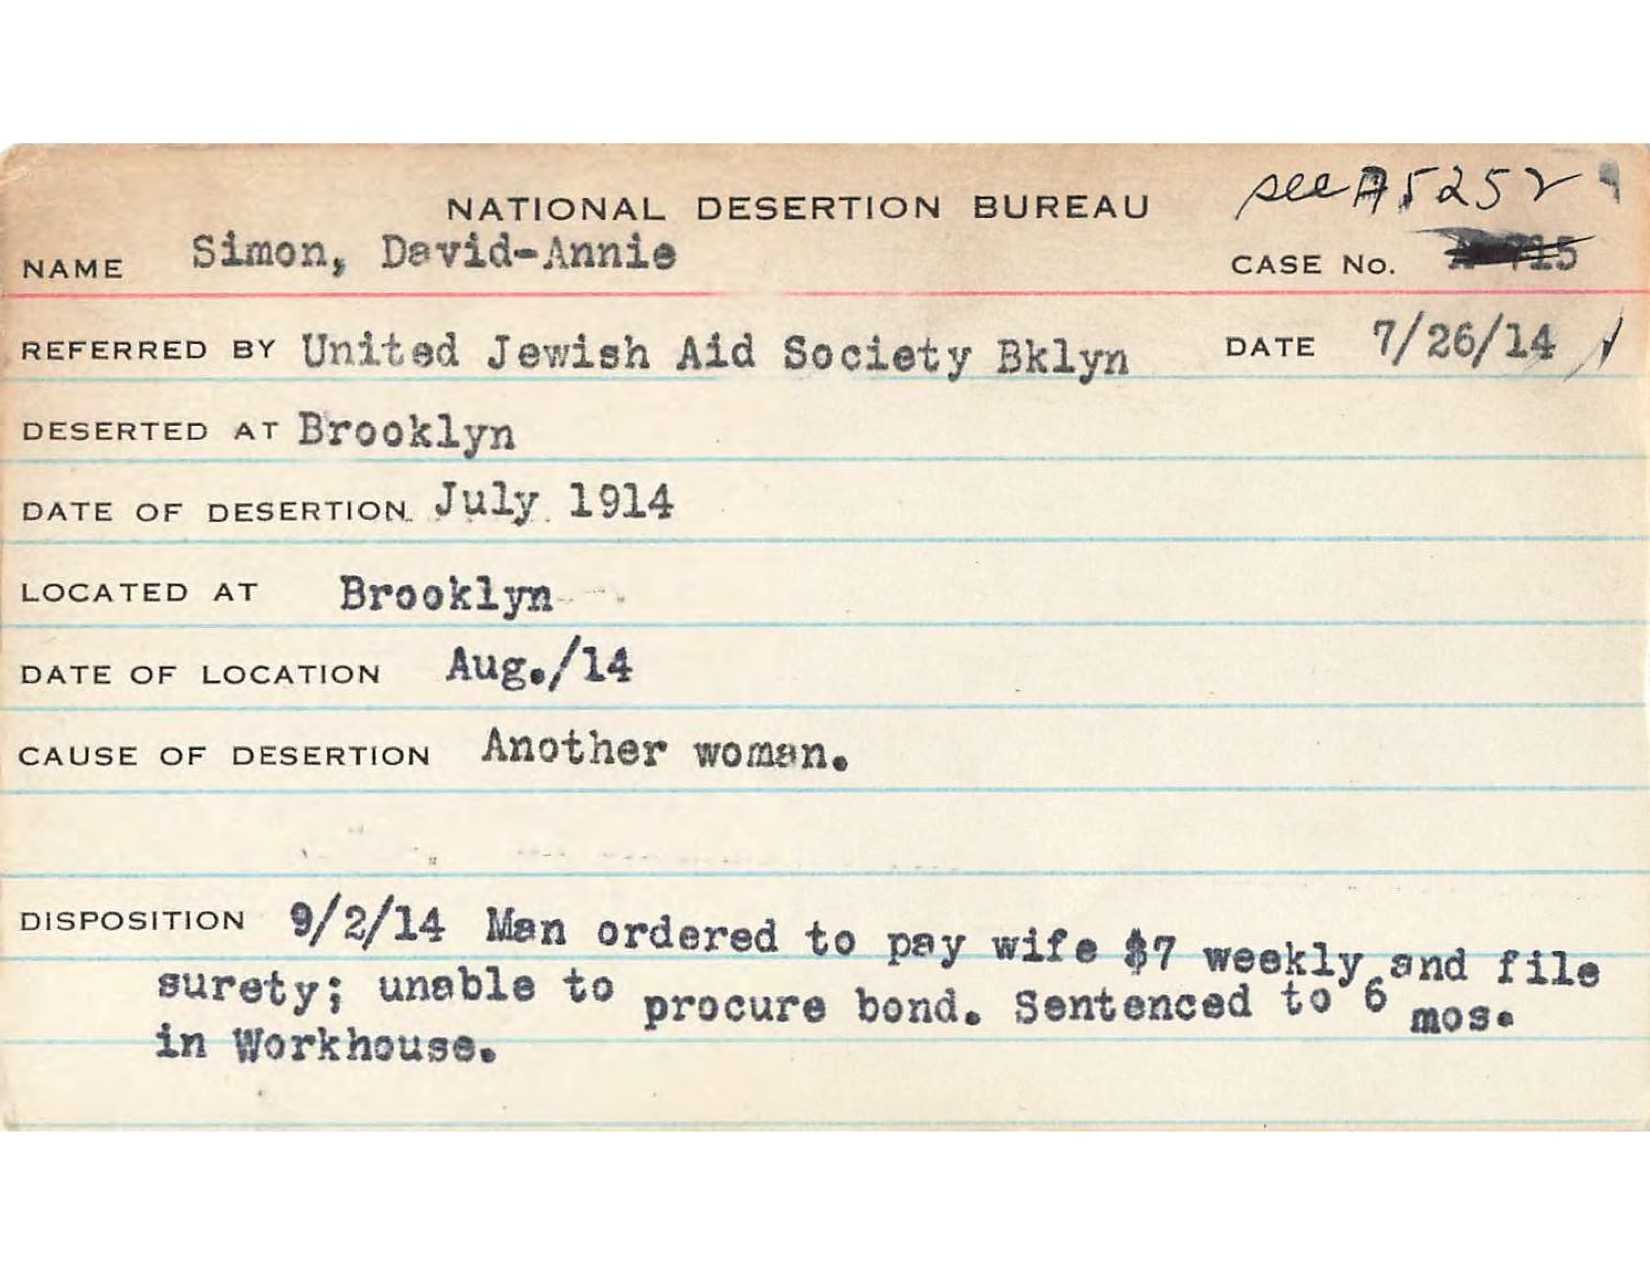 see A5252
NATIONAL DESERTION BUREAU
NAME Simon, David-Annie CASE No. A 715
REFERRED BY United Jewish Aid Society Bklyn DATE 7/26/14
DESERTED AT Brooklyn
DATE OF DESERTION July 1914
LOCATED AT Brooklyn
DATE OF LOCATION Aug./14
CAUSE OF DESERTION Another woman.
DISPOSITION 9/2/14 Man ordered to pay wife $7 weekly and file
surety; unable to procure bond. Sentenced to 6 mos.
in Workhouse.